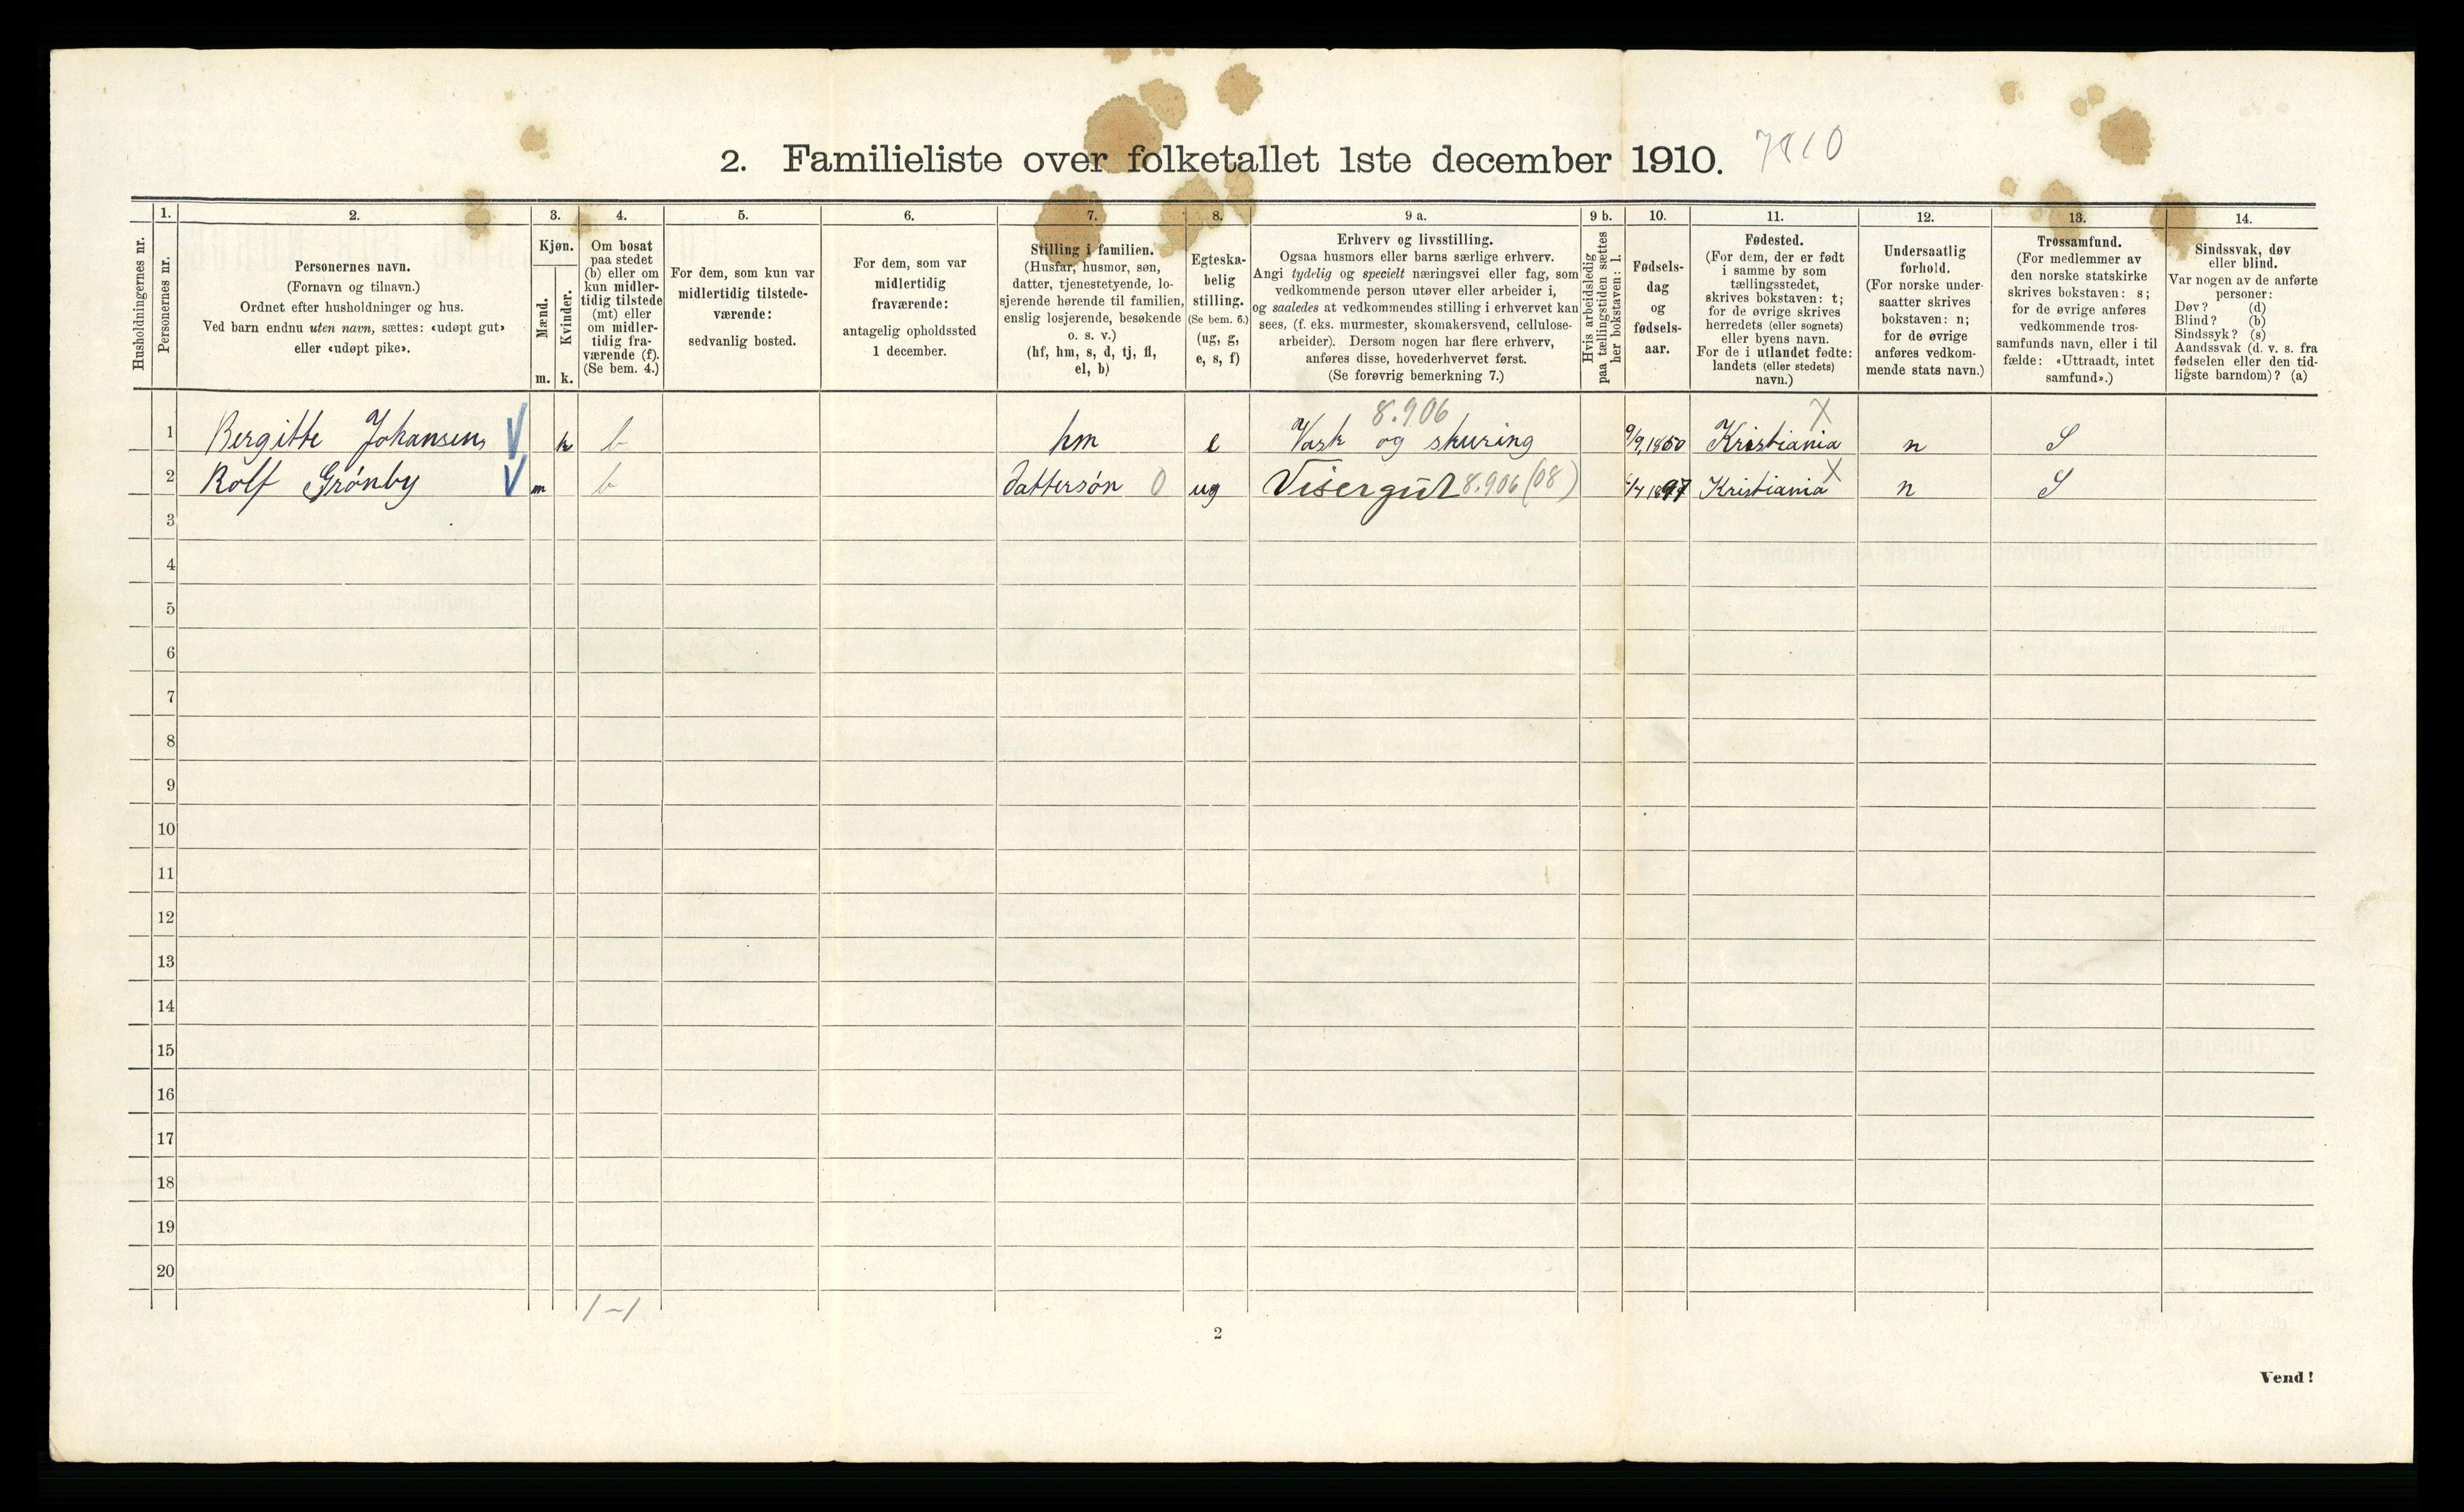 2. Familieliste over folketallet 1ste december 1910.
1. 2. 3. 4. 5. 6. 7. 8. 9 a. 9 b. 10. 11. 12. 13. 14.
Husholdningernes nr.
Personernes nr.
Personernes navn.
(Fornavn og tilnavn.)
Ordnet efter husholdninger og hus.
Ved barn endnu uten navn, sættes: «udøpt gut»
eller «udøpt pike».
Kjøn.
Mænd.
Kvinder.
m. k.
Om bosat
paa stedet
(b) eller om
kun midler-
tidig tilstede
(mt) eller
om midler-
tidig fra-
værende (f).
(Se bem. 4.)
For dem, som kun var
midlertidig tilstede-
værende:
sedvanlig bosted.
For dem, som var
midlertidig
fraværende:
antagelig opholdssted
1 december.
Stilling i familien.
(Husfar, husmor, søn,
datter, tjenestetyende, lo-
sjerende hørende til familien,
enslig losjerende, besøkende
o. s. v.)
(hf, hm, s, d, tj, fl,
el, b)
Egteska-
belig
stilling.
(Se bem. 6.)
(ug, g,
e, s, f)
Erhverv og livsstilling.
Ogsaa husmors eller barns særlige erhverv.
Angi tydelig og specielt næringsvei eller fag, som
vedkommende person utøver eller arbeider i,
og saaledes at vedkommendes stilling i erhvervet kan
sees, (f. eks. murmester, skomakersvend, cellulose-
arbeider). Dersom nogen har flere erhverv,
anføres disse, hovederhvervet først.
(Se forøvrig bemerkning 7.)
Hvis arbeidsledig
paa tællingstiden sættes
her bokstaven: l.
Fødsels-
dag
og
fødsels-
aar.
Fødested.
(For dem, der er født
i samme by som
tællingsstedet,
skrives bokstaven: t;
for de øvrige skrives
herredets (eller sognets)
eller byens navn.
For de i utlandet fødte:
landets (eller stedets)
navn.)
Undersaatlig
forhold.
(For norske under-
saatter skrives
bokstaven: n;
for de øvrige
anføres vedkom-
mende stats navn.)
Trossamfund.
(For medlemmer av
den norske statskirke
skrives bokstaven: s;
for de øvrige anføres
vedkommende tros-
samfunds navn, eller i til
fælde: «Uttraadt, intet
samfund».)
Sindssvak, døv
eller blind.
Var nogen av de anførte
personer:
Døv? (d)
Blind? (b)
Sindssyk? (s)
Aandssvak (d. v. s. fra
fødselen eller den tid-
ligste barndom)? (a)
8.906 X
1 Bergitte Johansen V k b hm e Vask og skuring 9/9 1850 Kristiania n S
2 Rolf Grønby V m b dattersøn 0 ug Visergut 8.906 (08) 1897 Kristiania X n S
3
4
5
6
7
8
9
10
11
12
13
14
15
16
17
18
19
20
1-1
2
Vend!